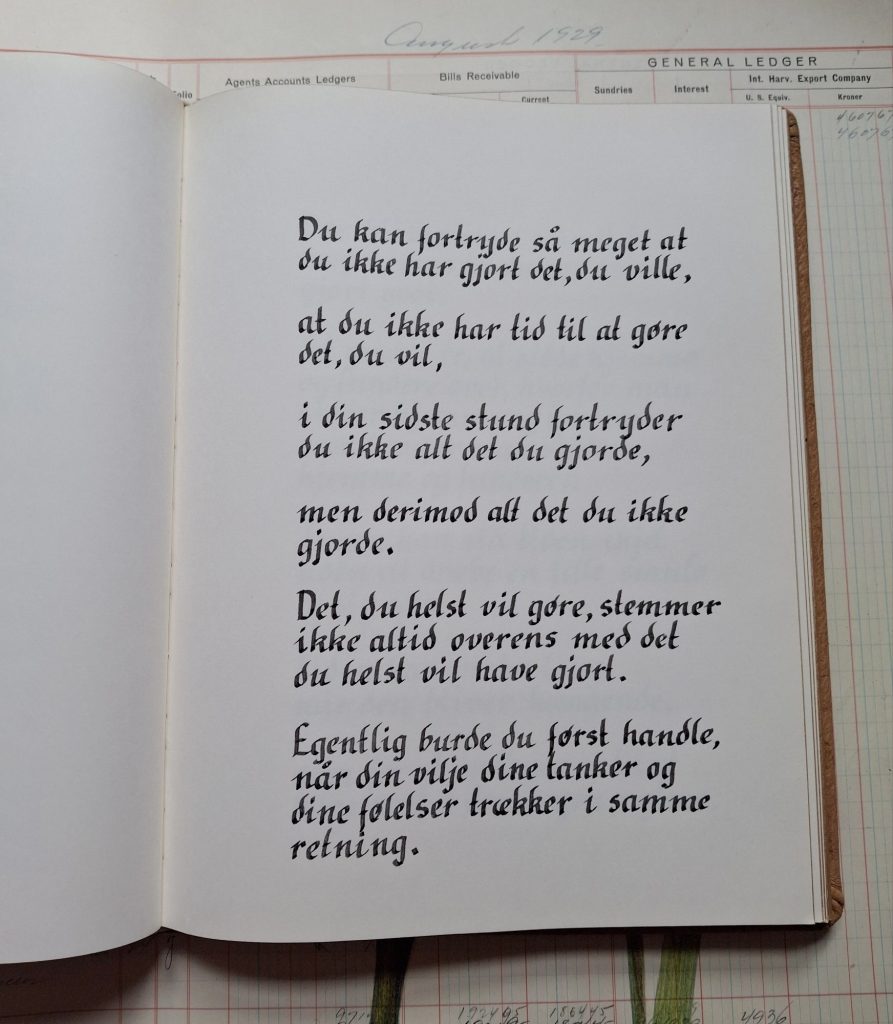 August 1929
GENERAL LEDGER
Agents Accounts Ledgers
Bills Receivable
Sundries
Interest
Int. Harv. Export Company
Current
U. S. Equiv.
Kroner
Du kan fortryde så meget at
du ikke har gjort det, du ville,
at du ikke har tid til at gøre
det, du vil,
i din sidste stund fortryder
du ikke alt det du gjorde,
men derimod alt det du ikke
gjorde.
Det, du helst vil gøre, stemmer
ikke altid overens med det
du helst vil have gjort.
Egentlig burde du først handle,
når din vilje dine tanker og
dine følelser trækker i samme
retning.
4936